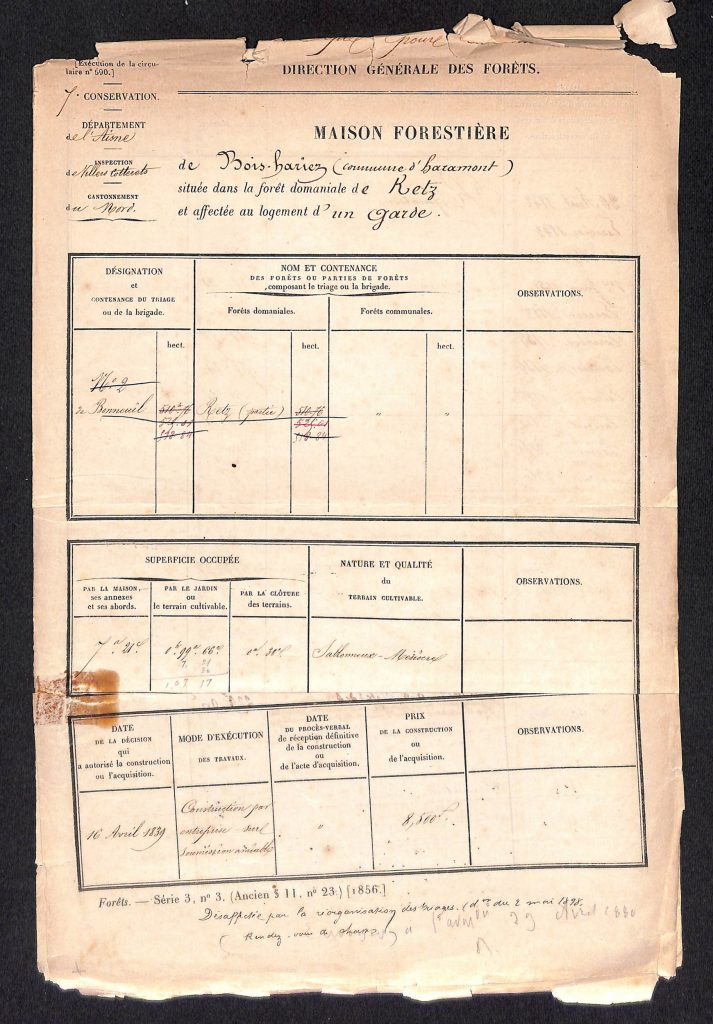 [Exécution de la circu-
laire n° 690.]
DIRECTION GÉNÉRALE DES FORÊTS.
7e CONSERVATION.
DÉPARTEMENT
de l'Aisne
INSPECTION
de Villers Cotterets
CANTONNEMENT
du Nord.
MAISON FORESTIÈRE
de Bois-hariez (commune d'haramont)
située dans la forêt domaniale de Retz
et affectée au logement d'un garde.
DÉSIGNATION
et
CONTENANCE DU TRIAGE
ou de la brigade.
NOM ET CONTENANCE
DES FORÊTS OU PARTIES DE FORÊTS
composant le triage ou la brigade.
Forêts domaniales.
Forêts communales.
OBSERVATIONS.
hect. hect. hect.
No 2
de Bonneuil 510.76 Retz (partie) 510.76 " "
525.01 525.01
518.84 518.84
SUPERFICIE OCCUPÉE
PAR LA MAISON,
ses annexes
et ses abords.
PAR LE JARDIN
ou
le terrain cultivable.
PAR LA CLÔTURE
des terrains.
NATURE ET QUALITÉ
du
TERRAIN CULTIVABLE.
OBSERVATIONS.
7a 21c 0h 99a 66c 0a 30c Sablonneux - Médiocre
7. 21
30
107 17
DATE
DE LA DÉCISION
qui
a autorisé la construction
ou l'acquisition.
MODE D'EXÉCUTION
DES TRAVAUX.
DATE
DU PROCÈS-VERBAL
de réception définitive
de la construction
ou
de l'acte d'acquisition.
PRIX
DE LA CONSTRUCTION
ou
de l'acquisition.
OBSERVATIONS.
16 Avril 1839
Construction par
entreprise sur
soumission amiable
"
8,500f.
Forêts. — Série 3, n° 3. (Ancien § 11, n° 23.) [1856.]
Désaffectée par la réorganisation des triages. (don du 2 mai 1898.
(Rendez-vous de chasse) 29 Avril 1890